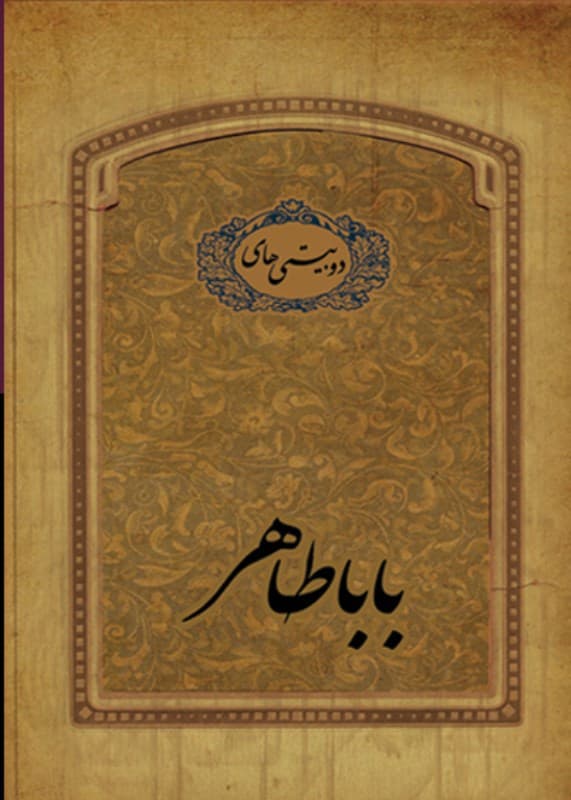 دوبیتی‌های
باباطاهر